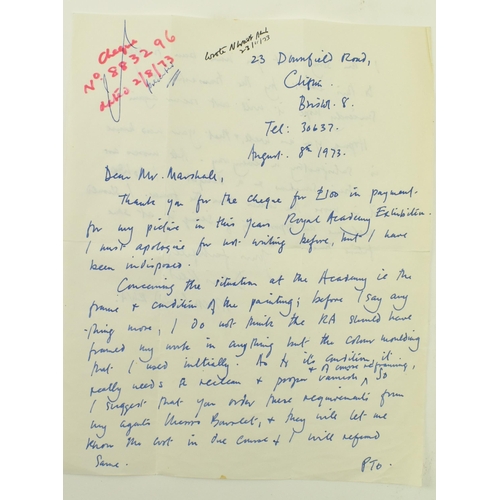 Cheque
No. 883296
dated 2/8/73
wrote
23 Downfield Road,
Clifton
Bristol. 8.
Tel: 30637.
August. 8th 1973.
Dear Mr. Marshall,
Thank you for the cheque for £100 in payment
for my picture in this years Royal Academy Exhibition.
I must apologise for not writing before, but I have
been indisposed.
Concerning the situation at the Academy ie the
frame & condition of the painting; before I say any
-thing more, I do not think the RA should have
framed my work in anything but the colour moulding
that I used initially. As to its condition, it
really needs a reclean & proper varnish & of course reframing, so
I suggest that you order these requirements from
my agents Messrs & they will let me
know the cost in due course & I will refund
same.
PTO.